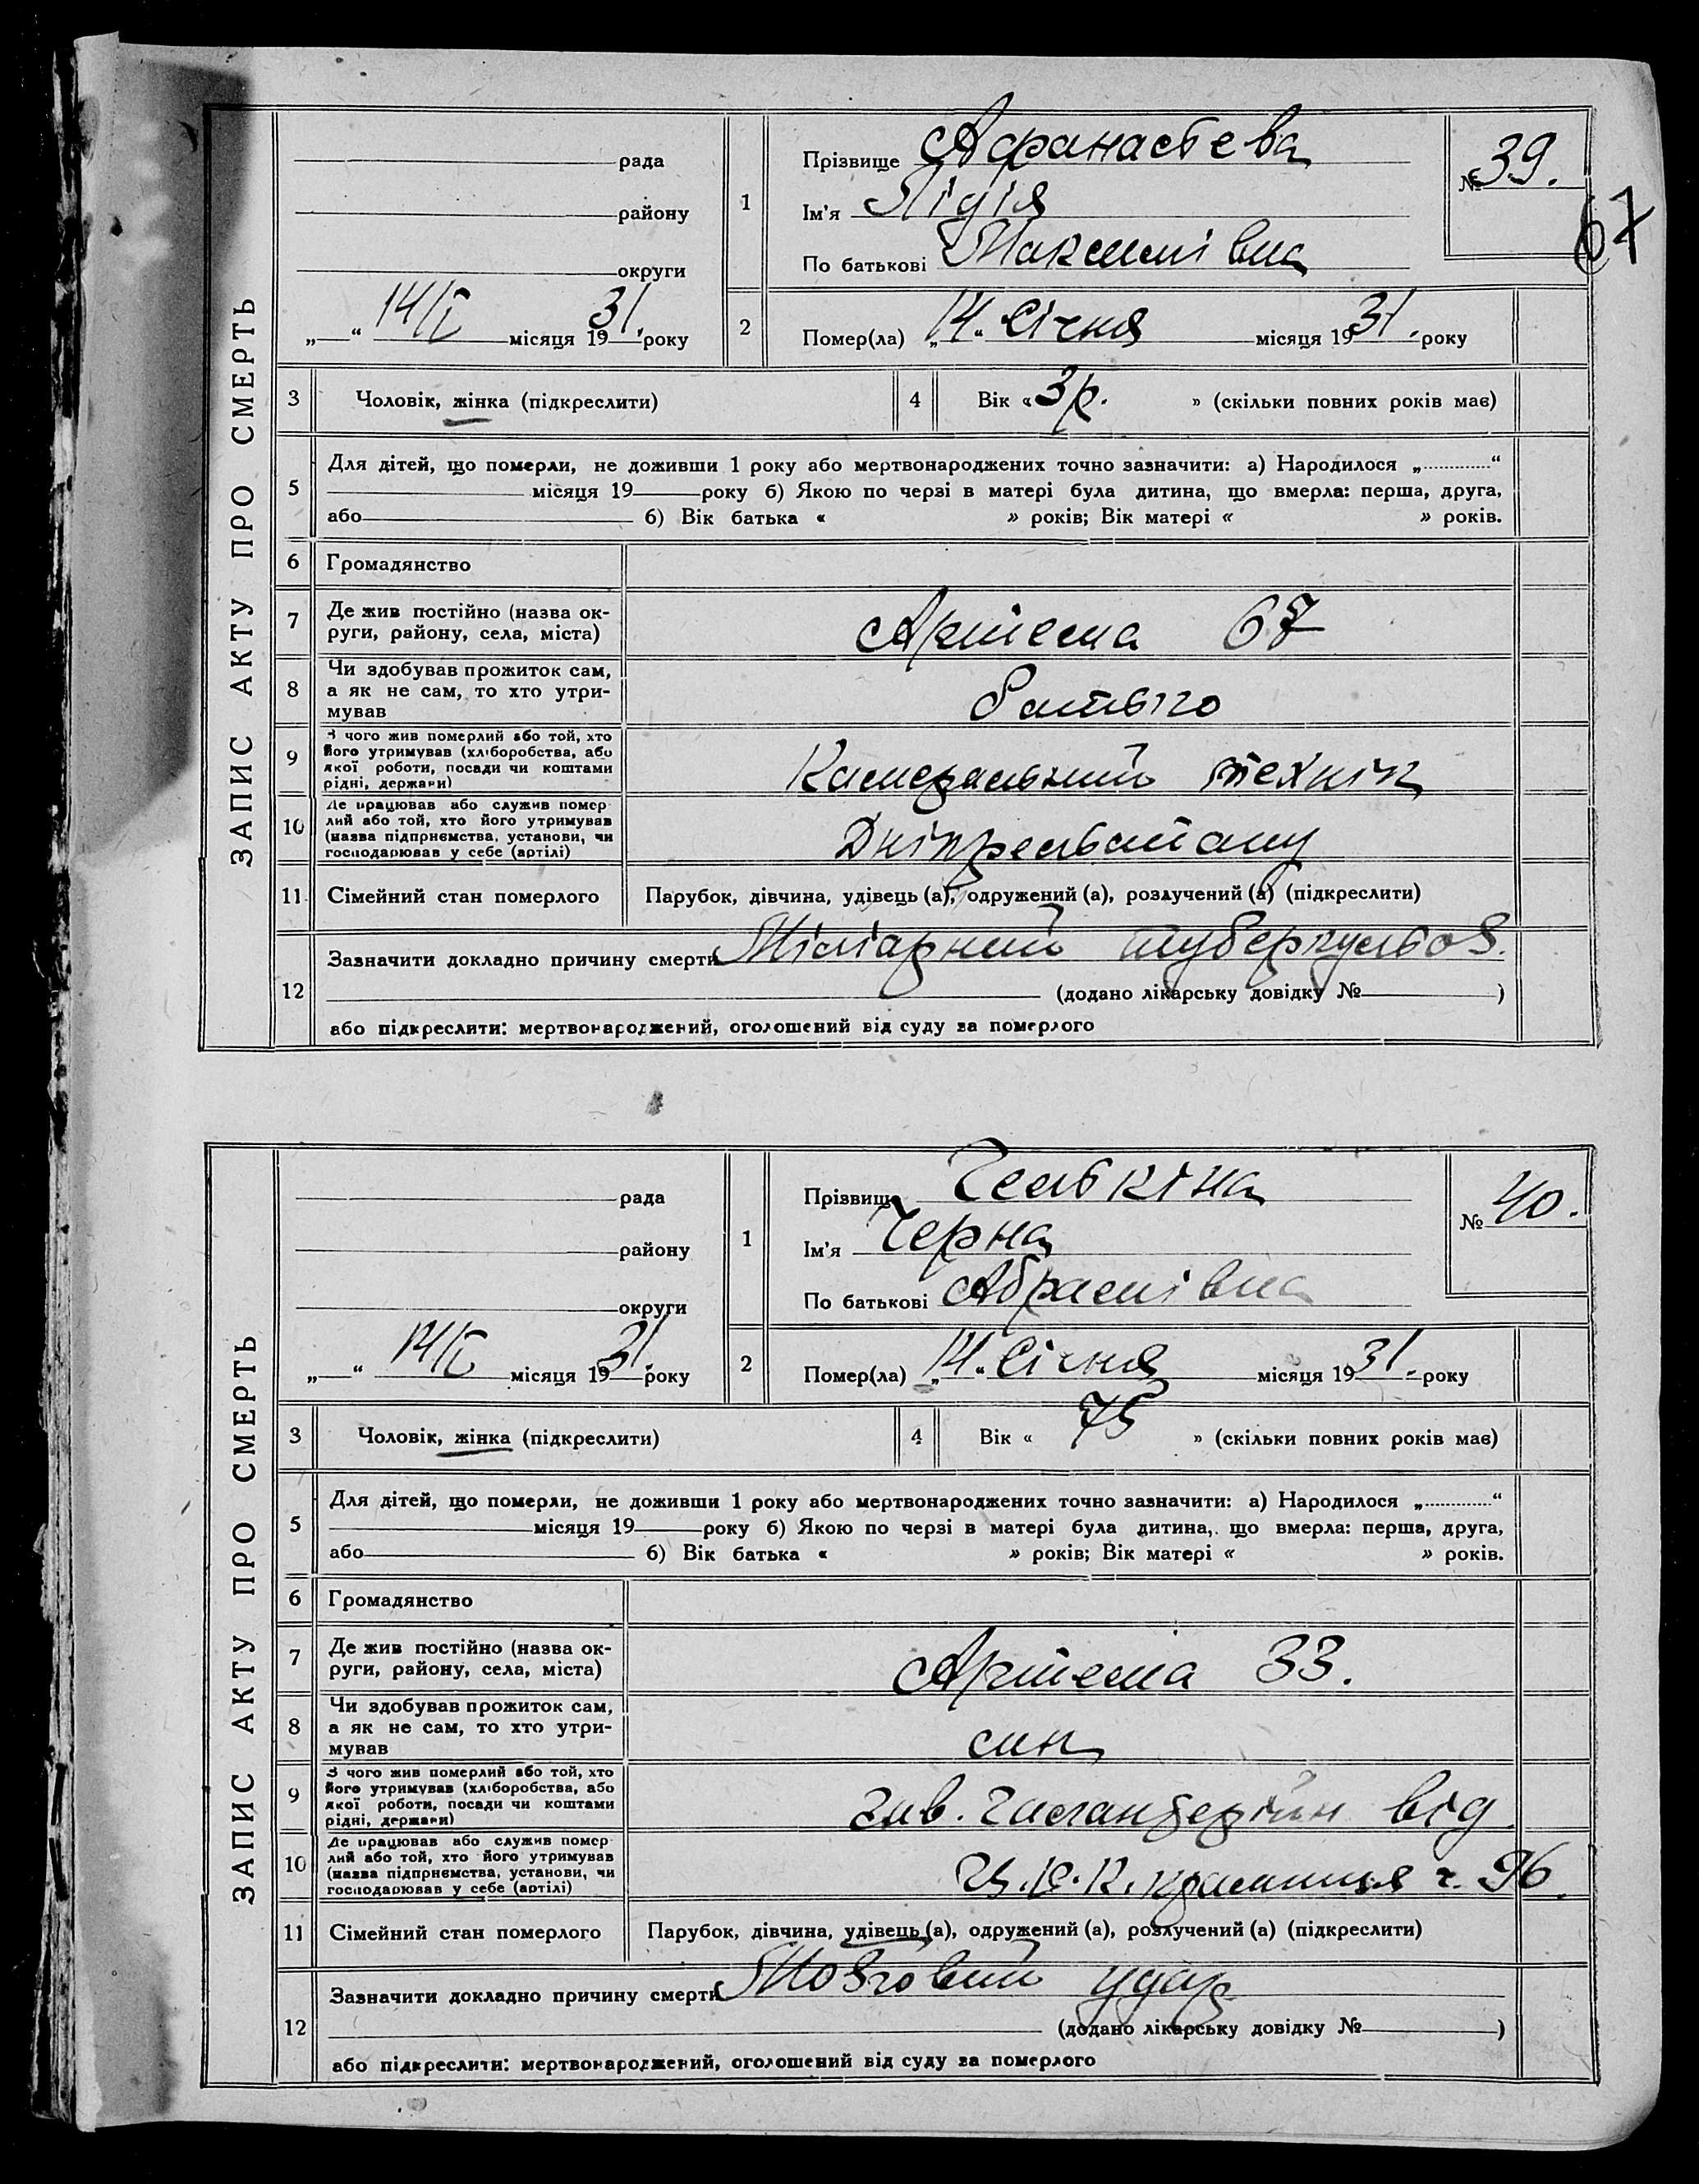 ЗАПИС АКТУ ПРО СМЕРТЬ
рада
району
округи
„ “ 14/I місяця 1931. року
1
Прізвище Афанасьева
Ім'я Лідія
По батькові Максимівна
№ 39.
67
2
Помер(ла) „14“ Січня місяця 1931. року
3 Чоловік, жінка (підкреслити)
4 Вік «3 р. » (скільки повних років має)
5
Для дітей, що померли, не доживши 1 року або мертвонароджених точно зазначити: а) Народилося „ “
місяця 19 року б) Якою по черзі в матері була дитина, що вмерла: перша, друга,
або б) Вік батька « » років; Вік матері « » років.
6 Громадянство
7
Де жив постійно (назва ок-
руги, району, села, міста)
Артема 67
8
Чи здобував прожиток сам,
а як не сам, то хто утри-
мував
Батько
9
З чого жив померлий або той, хто
його утримував (хліборобства, або
якої роботи, посади чи коштами
рідні, держави)
Камеральний технік
10
Де працював або служив помер-
лий або той, хто його утримував
(назва підприємства, установи, чи
господарював у себе (артілі)
11 Сімейний стан померлого Парубок, дівчина, удівець (а), одружений (а), розлучений (а) (підкреслити)
12
Зазначити докладно причину смерти Міліарний туберкульоз.
(додано лікарську довідку № )
або підкреслити: мертвонароджений, оголошений від суду за померлого
ЗАПИС АКТУ ПРО СМЕРТЬ
рада
району
округи
„ “ 14/I місяця 1931. року
1
Прізвище
Ім'я Черна
По батькові Абрамівна
№ 40.
2
Помер(ла) „14“ Січня місяця 1931. року
3 Чоловік, жінка (підкреслити)
4 Вік « 75 » (скільки повних років має)
5
Для дітей, що померли, не доживши 1 року або мертвонароджених точно зазначити: а) Народилося „ “
місяця 19 року б) Якою по черзі в матері була дитина, що вмерла: перша, друга,
або б) Вік батька « » років; Вік матері « » років.
6 Громадянство
7
Де жив постійно (назва ок-
руги, району, села, міста)
Артема 33.
8
Чи здобував прожиток сам,
а як не сам, то хто утри-
мував
син
9
З чого жив померлий або той, хто
його утримував (хліборобства, або
якої роботи, посади чи коштами
рідні, держави)
Зав. галантерейн від
10
Де працював або служив помер-
лий або той, хто його утримував
(назва підприємства, установи, чи
господарював у себе (артілі)
крамниця ч. 96.
11 Сімейний стан померлого Парубок, дівчина, удівець (а), одружений (а), розлучений (а) (підкреслити)
12
Зазначити докладно причину смерти Мозговий удар
(додано лікарську довідку № )
або підкреслити: мертвонароджений, оголошений від суду за померлого